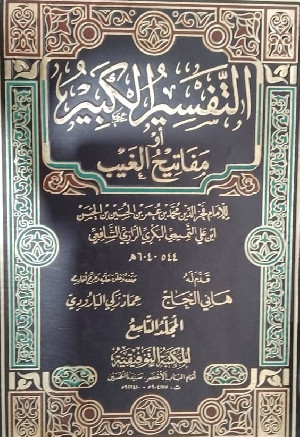 التفسير الكبير
أو
مفاتيح الغيب
للإمام فخر الدين محمد بن عمر بن الحسين بن الحسن
ابن علي التميمي البكري الرازي الشافعي
٥٤٤ - ٦٠٤ هـ
قدم له
هاني الحاج
حققه وعلق عليه وخرج أحاديثه
عماد زكي البارودي
المجلد التاسع
المكتبة التوفيقية
أمام الباب الأخضر سيدنا الحسين